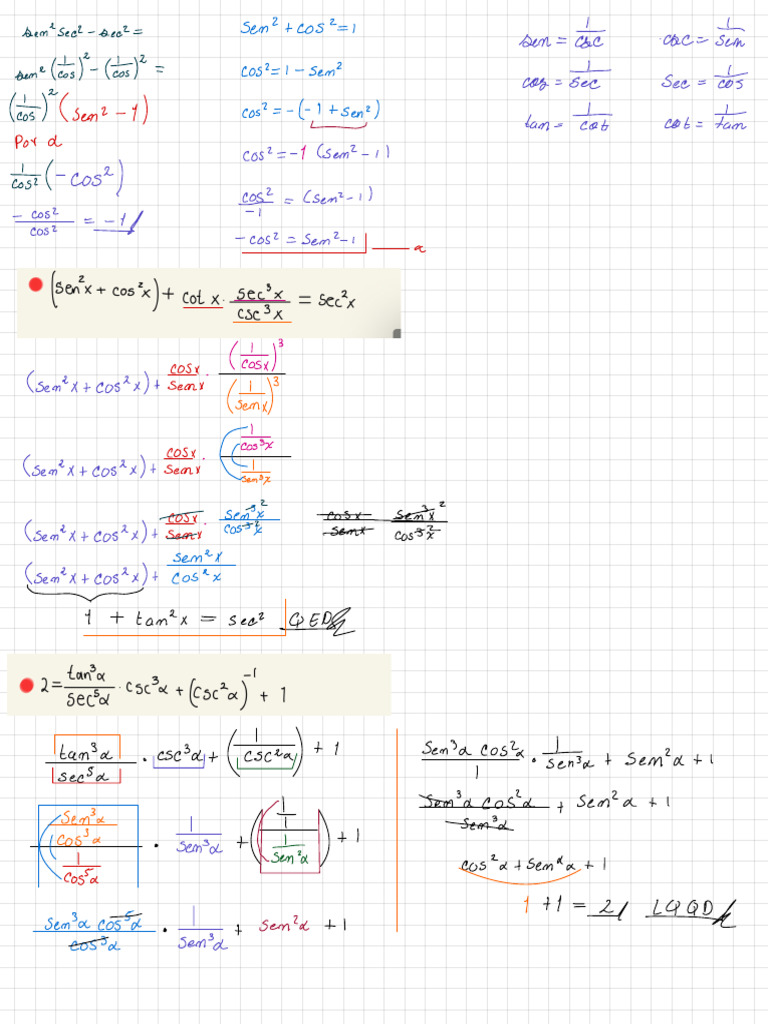 sem² sec² - sec² =
sem² (1/cos)² - (1/cos)² =
(1/cos)² (sem² - 1)
Por α
1/cos² (-cos²)
-cos²/cos² = -1
sem² + cos² = 1
cos² = 1 - sem²
cos² = -(-1 + sen²)
cos² = -1 (sem² - 1)
cos²/-1 = (sem² - 1)
-cos² = sem² - 1 — α
sen = 1/csc csc = 1/sen
cos = 1/sec sec = 1/cos
tan = 1/cot cot = 1/tan
(sen²x + cos²x) + cot x · sec³x/csc³x = sec²x
(sem²x + cos²x) + cosx/senx · (1/cosx)³/(1/semx)³
(sem²x + cos²x) + cosx/senx · (1/cos³x)/(1/sen³x)
(sem²x + cos²x) + cosx/senx · sen³x²/cos³x² cosx/senx sen³x²/cos³x²
(sem²x + cos²x) + sem²x/cos²x
1 + tan²x = sec² QED
2 = tan³α/sec⁵α · csc³α + (csc²α)⁻¹ + 1
tan³α/sec⁵α · csc³α + (1/csc²α) + 1
(sem³α/cos³α)/(1/cos⁵α) · 1/sem³α + ((1/1)/(1/sem²α)) + 1
sem³α cos⁵α/cos³α · 1/sem³α + sem²α + 1
sem³α cos²α/1 · 1/sen³α + sem²α + 1
sem³α cos²α/sem³α + sem²α + 1
cos²α + sem²α + 1
1 + 1 = 2 LQQD